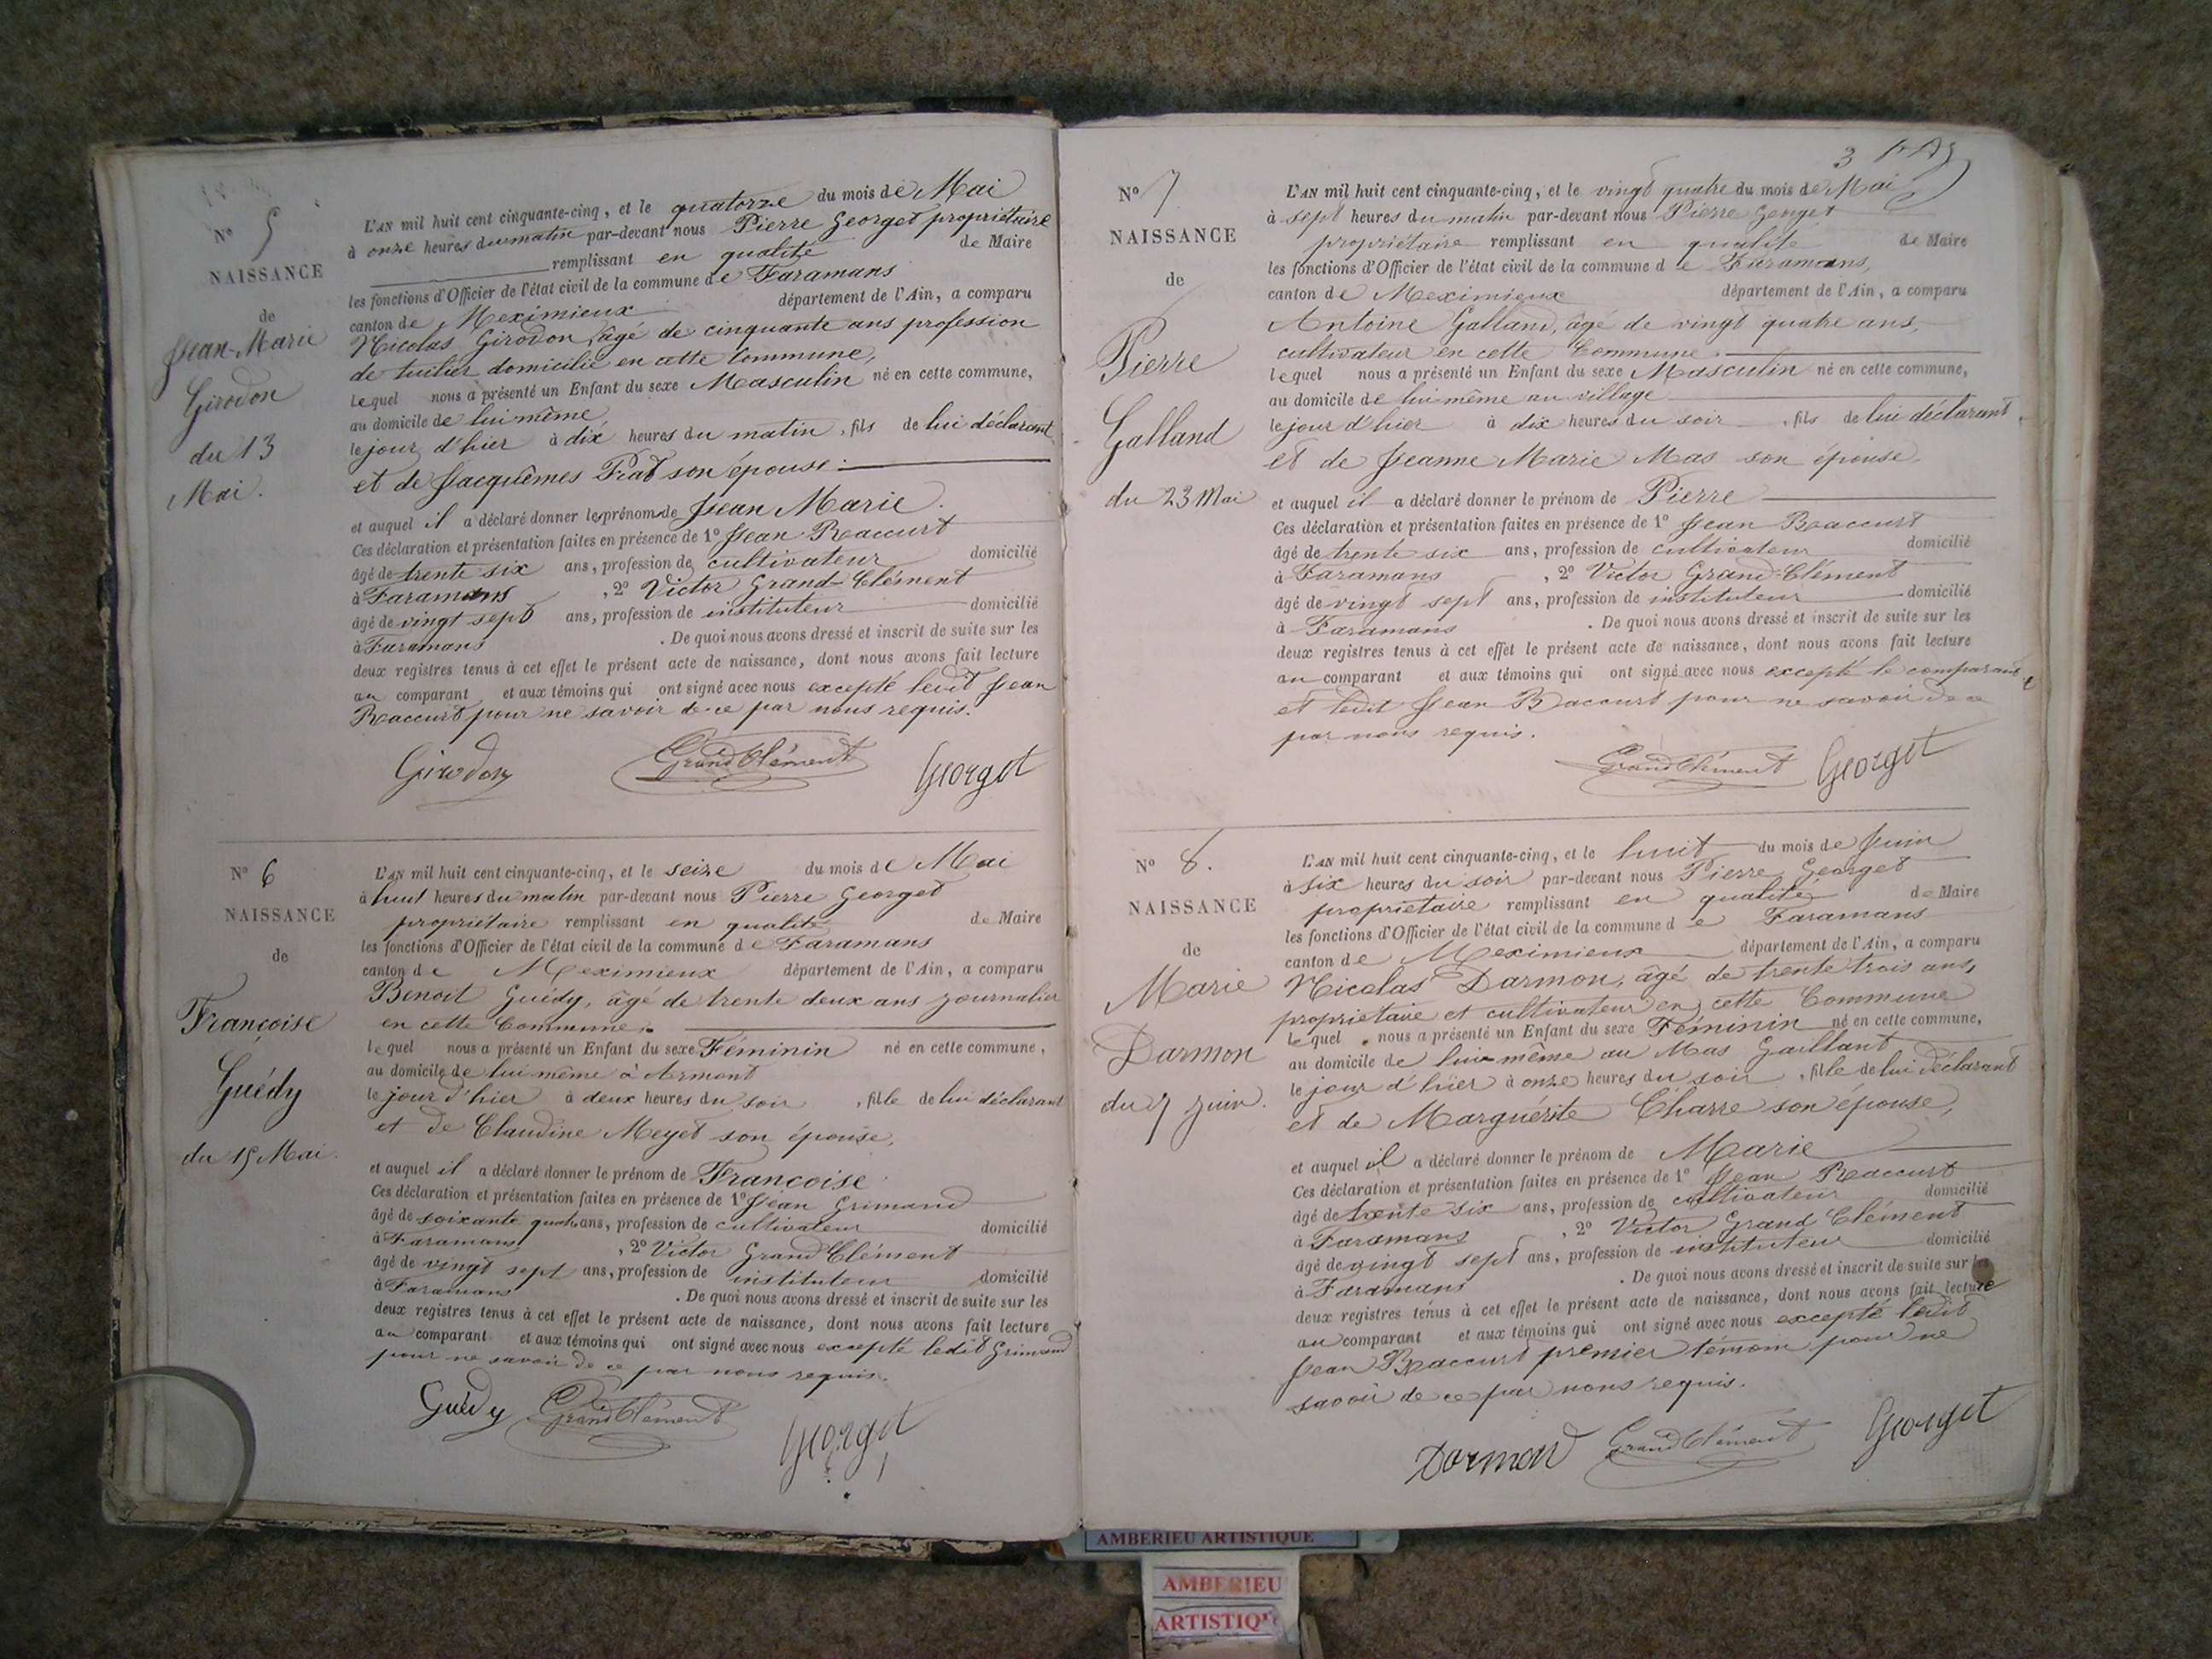 N° 5
NAISSANCE
de
Jean-Marie
Girodon
du 13
Mai.
L'AN mil huit cent cinquante-cinq, et le quatorze du mois de Mai
à onze heures du matin par-devant nous Pierre Georget propriétaire
remplissant en qualité de Maire
les fonctions d'Officier de l'état civil de la commune de Faramans
canton de Meximieux département de l'Ain, a comparu
Nicolas Girodon, âgé de cinquante ans profession
de tuilier domicilié en cette Commune,
Lequel nous a présenté un Enfant du sexe Masculin né en cette commune,
au domicile de lui même
le jour d'hier à dix heures du matin, fils de lui déclarant
et de Jacquêmes Prat son épouse.
et auquel il a déclaré donner les prénoms de Jean Marie.
Ces déclaration et présentation faites en présence de 1° Jean Raccurt
âgé de trente six ans, profession de cultivateur domicilié
à Faramans, 2° Victor Grand-Clément
âgé de vingt sept ans, profession de instituteur domicilié
à Faramans. De quoi nous avons dressé et inscrit de suite sur les
deux registres tenus à cet effet le présent acte de naissance, dont nous avons fait lecture
au comparant et aux témoins qui ont signé avec nous excepté ledit Jean
Raccurt pour ne savoir de ce par nous requis.
Girodon GrandClément Georget
N° 6
NAISSANCE
de
Françoise
Guédy
du 15 Mai.
L'AN mil huit cent cinquante-cinq, et le seize du mois de Mai
à huit heures du matin par-devant nous Pierre Georget
propriétaire remplissant en qualité de Maire
les fonctions d'Officier de l'état civil de la commune de Faramans
canton de Meximieux département de l'Ain, a comparu
Benoit Guédy, âgé de trente deux ans journalier
en cette Commune.
Lequel nous a présenté un Enfant du sexe Féminin né en cette commune,
au domicile de lui même à Armont
le jour d'hier à deux heures du soir, fille de lui déclarant
et de Claudine Meyet son épouse,
et auquel il a déclaré donner le prénom de Françoise
Ces déclaration et présentation faites en présence de 1° Jean Grimand
âgé de soixante quatre ans, profession de cultivateur domicilié
à Faramans, 2° Victor Grand Clément
âgé de vingt sept ans, profession de instituteur domicilié
à Faramans. De quoi nous avons dressé et inscrit de suite sur les
deux registres tenus à cet effet le présent acte de naissance, dont nous avons fait lecture
au comparant et aux témoins qui ont signé avec nous excepté ledit Grimand
pour ne savoir de ce par nous requis.
Guédy GrandClément Georget
3
N° 7
NAISSANCE
de
Pierre
Galland
du 23 Mai
L'AN mil huit cent cinquante-cinq, et le vingt quatre du mois de Mai
à sept heures du matin par-devant nous Pierre Georget
propriétaire remplissant en qualité de Maire
les fonctions d'Officier de l'état civil de la commune de Faramans,
canton de Meximieux département de l'Ain, a comparu
Antoine Galland, âgé de vingt quatre ans,
cultivateur en cette Commune.
Lequel nous a présenté un Enfant du sexe Masculin né en cette commune,
au domicile de lui même au village
le jour d'hier à dix heures du soir, fils de lui déclarant,
et de Jeanne Marie Mas son épouse,
et auquel il a déclaré donner le prénom de Pierre
Ces déclaration et présentation faites en présence de 1° Jean Raccurt
âgé de trente six ans, profession de cultivateur domicilié
à Faramans, 2° Victor Grand-Clément
âgé de vingt sept ans, profession de instituteur domicilié
à Faramans. De quoi nous avons dressé et inscrit de suite sur les
deux registres tenus à cet effet le présent acte de naissance, dont nous avons fait lecture
au comparant et aux témoins qui ont signé avec nous excepté le comparant
et ledit Jean Raccurt pour ne savoir de ce
par nous requis.
GrandClément Georget
N° 8.
NAISSANCE
de
Marie
Darmon
du 7 Juin.
L'AN mil huit cent cinquante-cinq, et le huit du mois de Juin
à six heures du soir par-devant nous Pierre Georget
propriétaire remplissant en qualité de Maire
les fonctions d'Officier de l'état civil de la commune de Faramans
canton de Meximieux département de l'Ain, a comparu
Nicolas Darmon, âgé de trente trois ans,
propriétaire et cultivateur en cette Commune
Lequel nous a présenté un Enfant du sexe Féminin né en cette commune,
au domicile de lui même au Mas Gaillant
le jour d'hier à onze heures du soir, fille de lui déclarant
et de Marguérite Charre son épouse,
et auquel il a déclaré donner le prénom de Marie
Ces déclaration et présentation faites en présence de 1° Jean Raccurt
âgé de trente six ans, profession de cultivateur domicilié
à Faramans, 2° Victor Grand Clément
âgé de vingt sept ans, profession de instituteur domicilié
à Faramans. De quoi nous avons dressé et inscrit de suite sur les
deux registres tenus à cet effet le présent acte de naissance, dont nous avons fait lecture
au comparant et aux témoins qui ont signé avec nous excepté ledit
Jean Raccurt premier témoin pour ne
savoir de ce par nous requis.
Darmon GrandClément Georget
AMBERIEU ARTISTIQUE
AMBERIEU
ARTISTIQUE